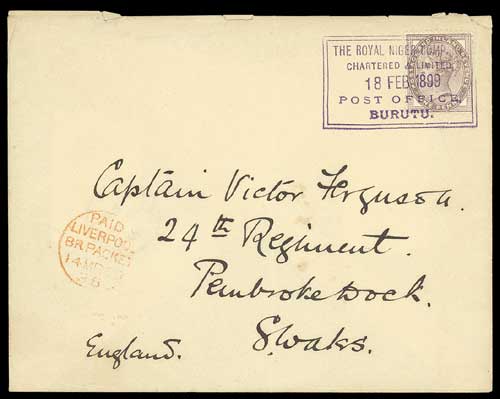 THE ROYAL NIGER COMP
CHARTERED & LIMITED
18 FEB 1899
POST OFFICE
BURUTU.
Captain Victor Ferguson.
24th Regiment.
Pembroke Dock.
S. Wales.
England.
PAID
LIVERPOOL
BR PACKET
14 MR